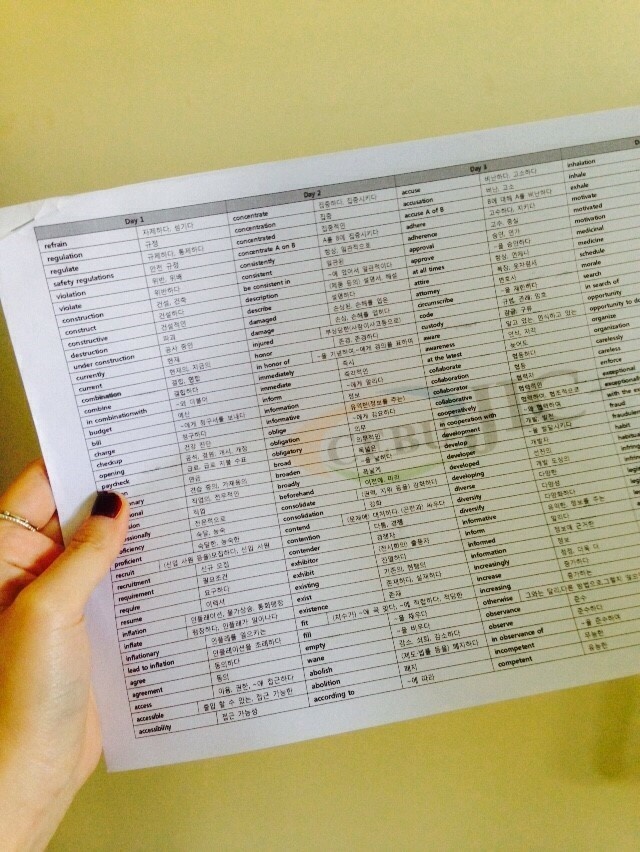 Day 1
refrain 자제하다, 삼가다
regulation 규정
regulate 규제하다, 통제하다
safety regulations 안전 규정
violation 위반, 위배
violate 위반하다
construction 건설, 건축
construct 건설하다
constructive 건설적인
destruction 파괴
under construction 공사 중인
currently 현재
current 현재의, 지금의
combination 결합
combine 결합하다
in combinationwith ~와 더불어
budget 예산
bill ~에게 청구서를 보내다
charge 청구하다
checkup 건강 진단
opening 공석, 결원, 개시, 개장
paycheck 급료, 급료 지불 수표
직업의, 전문적인
직업
전문적으로
숙달, 능숙
proficient 숙달한, 능숙한
recruit (신입 사원 등을)모집하다, 신입 사원
recruitment 신규 모집
requirement 필요조건
require 요구하다
resume 이력서
inflation 인플레이션, 물가상승, 통화팽창
inflate 팽창하다, 인플레가 일어나다
inflationary 인플레를 일으키는
lead to inflation 인플레이션을 초래하다
agree 동의하다
agreement 동의
access 이용, 권한, ~에 접근하다
accessible 출입 할 수 있는, 접근 가능한
accessibility 접근 가능성
Day 2
concentrate 집중하다, 집중시키다
concentration 집중
concentrated 집중적인
concentrate A on B A를 B에 집중시키다
consistently 항상, 일관적으로
consistent 일관된
be consistent in ~에 있어서 일관적이다
description (제품 등의) 설명서, 해설
describe 설명하다
damaged 손상된, 손해를 입은
damage 손상, 손해를 입히다
injured 부상당한(사람이사고등으로)
honor 존경, 존경하다
in honor of ~을 기념하여,~에게 경의를 표하여
immediately 즉시
immediate 즉각적인
inform ~에게 알리다
information 정보
informative 유익한(정보를 주는)
oblige ~에게 강요하다
obligation 의무
obligatory 의무적인
broad 폭넓은
broaden ~을 넓히다
broadly 폭넓게
beforehand 이전에, 미리
consolidate (권력, 지위 등을) 강화하다
consolidation 강화
contend (문제에) 대처하다, (곤란과) 싸우다
contention 다툼, 경쟁
contender 경쟁자
exhibitor (전시회의) 출품자
exhibit 진열하다
existing 기존의, 현행의
exist 존재하다, 실재하다
existence 존재
fit (치수가) ~에 꼭 맞다, ~에 적합하다, 적당한
fill ~을 채우다
empty ~을 비우다
wane 감소, 쇠퇴, 감소하다
abolish (제도 법률 등을) 폐지하다
abolition 폐지
according to ~에 따라
Day 3
accuse 비난하다, 고소하다
accusation 비난, 고소
accuse A of B B에 대해 A를 비난하다
adhere 고수하다, 지키다
adherence 고수, 충실
approval 승인, 인가
approve ~을 승인하다
at all times 항상, 언제나
attire 복장, 옷차림새
attorney 변호사
circumscribe ~을 제한하다
code 규범, 관례, 암호
custody 감금, 구류
aware 알고 있는, 인식하고 있는
awareness 인식, 자각
at the latest 늦어도
collaborate 협동하다
collaboration 협동
collaborator 협력자
collaborative 협력적인
cooperatively 협력하여, 협조적으로
in cooperation with ~와 협력하여
development 개발, 발전
develop ~을 발달시키다
developer 개발자
developed 선진의
developing 개발 도상의
diverse 다양한
diversity 다양성
diversify 다양화하다
informative 유익한, 정보를 주는
inform 알리다
informed 정보에 근거한
information 정보
increasingly 점점, 더욱 더
increase 증가하다
increasing 증가하는
otherwise
observance 준수
observe 준수하다
in observance of ~을 준수하여
incompetent 무능한
competent 유능한
inhalation
inhale
exhale
motivate
motivated
motivation
medicinal
medicine
schedule
morale
search
in search of
opportunity
opportunity to
organize
organization
carelessly
careless
enforce
exceptional
fraud
habit
CEBU JIC